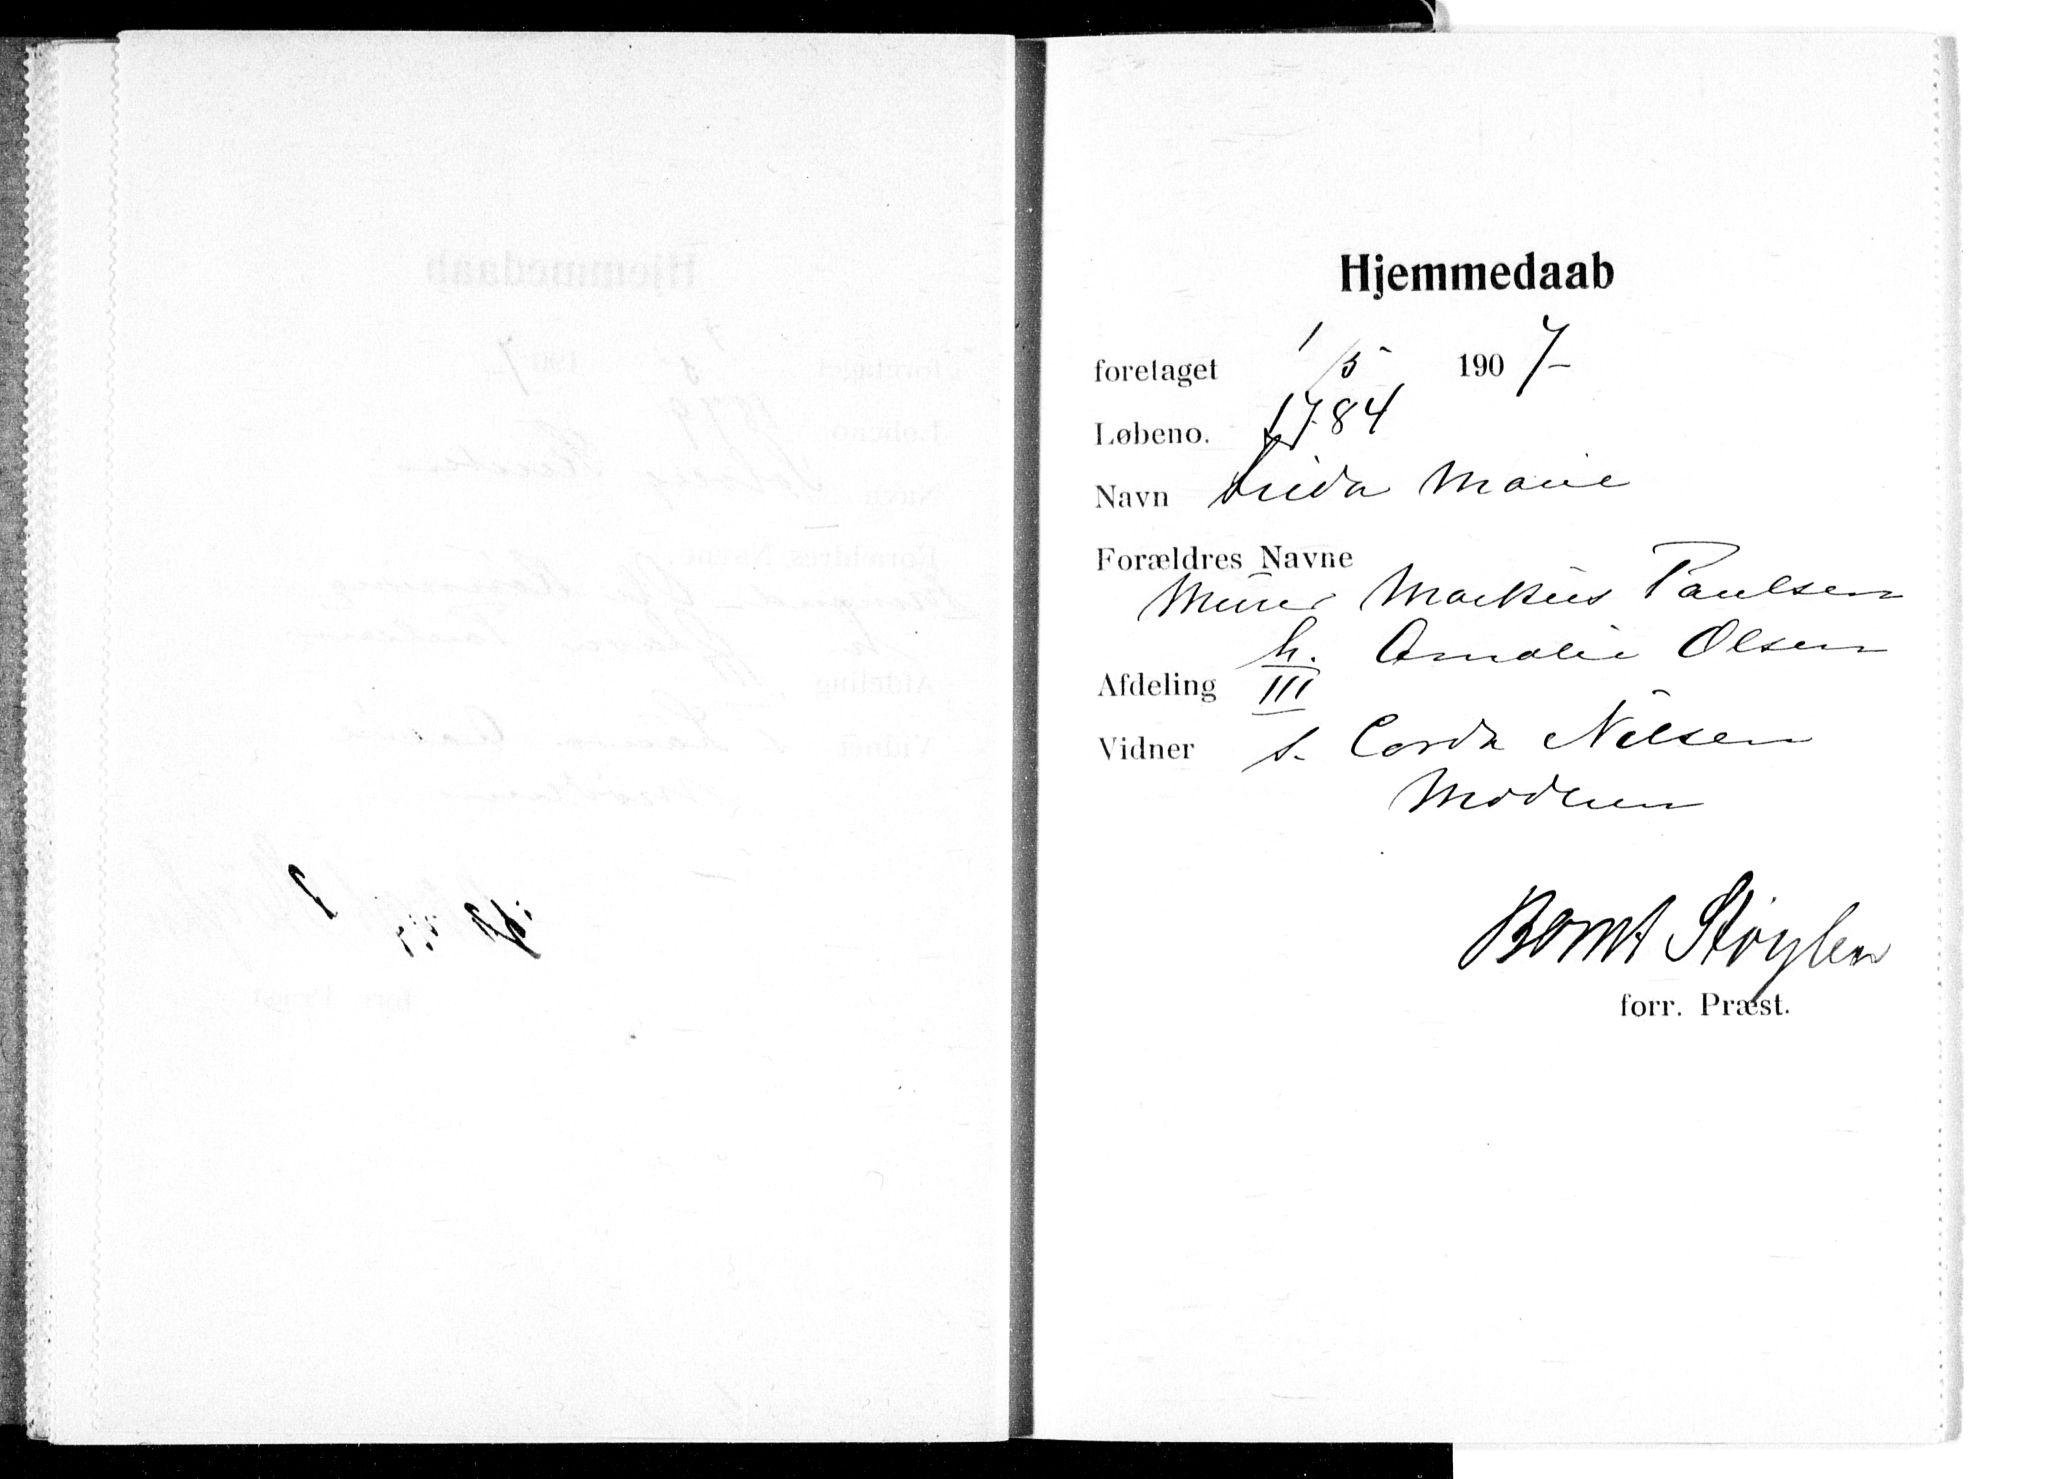 Hjemmedaab
foretaget 1/5 1907
Løbeno. 1784
Navn Frida Marie
Forældres Navne
Murer Markus Paulsen
h. Amalie Olsen
Afdeling III
Vidner s. Corda Nilsen
Moderen
Bernt Støylen
forr. Præst.